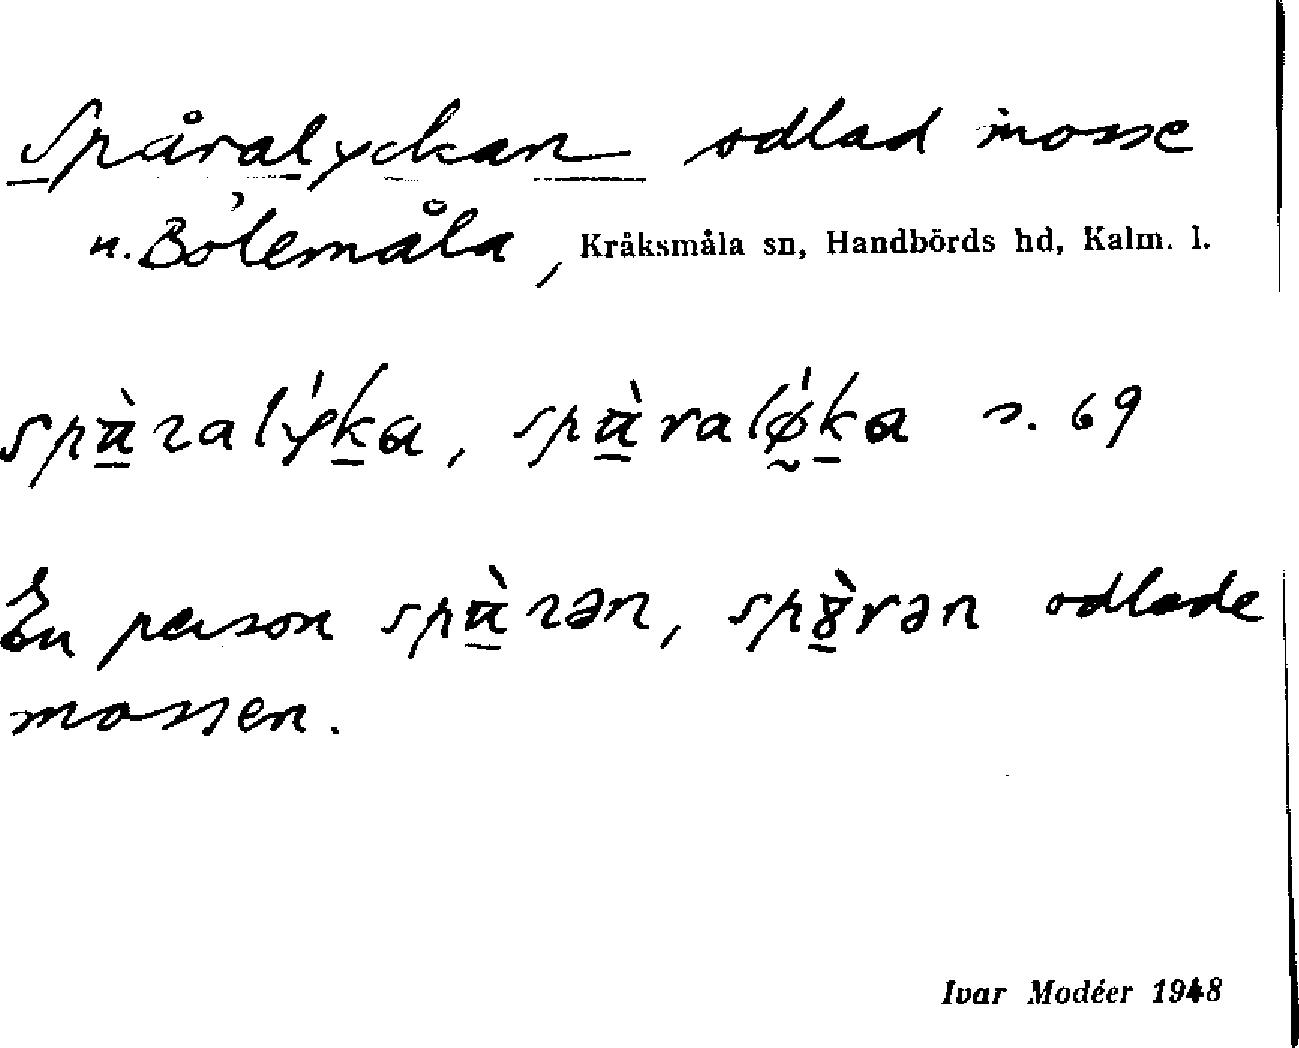 Spåralyckan odlad mosse
u. Bölemåla, Kråksmåla sn, Handbörds hd, Kalm. l.
s. 69
En person odlade
mossen.
Ivar Modéer 1948